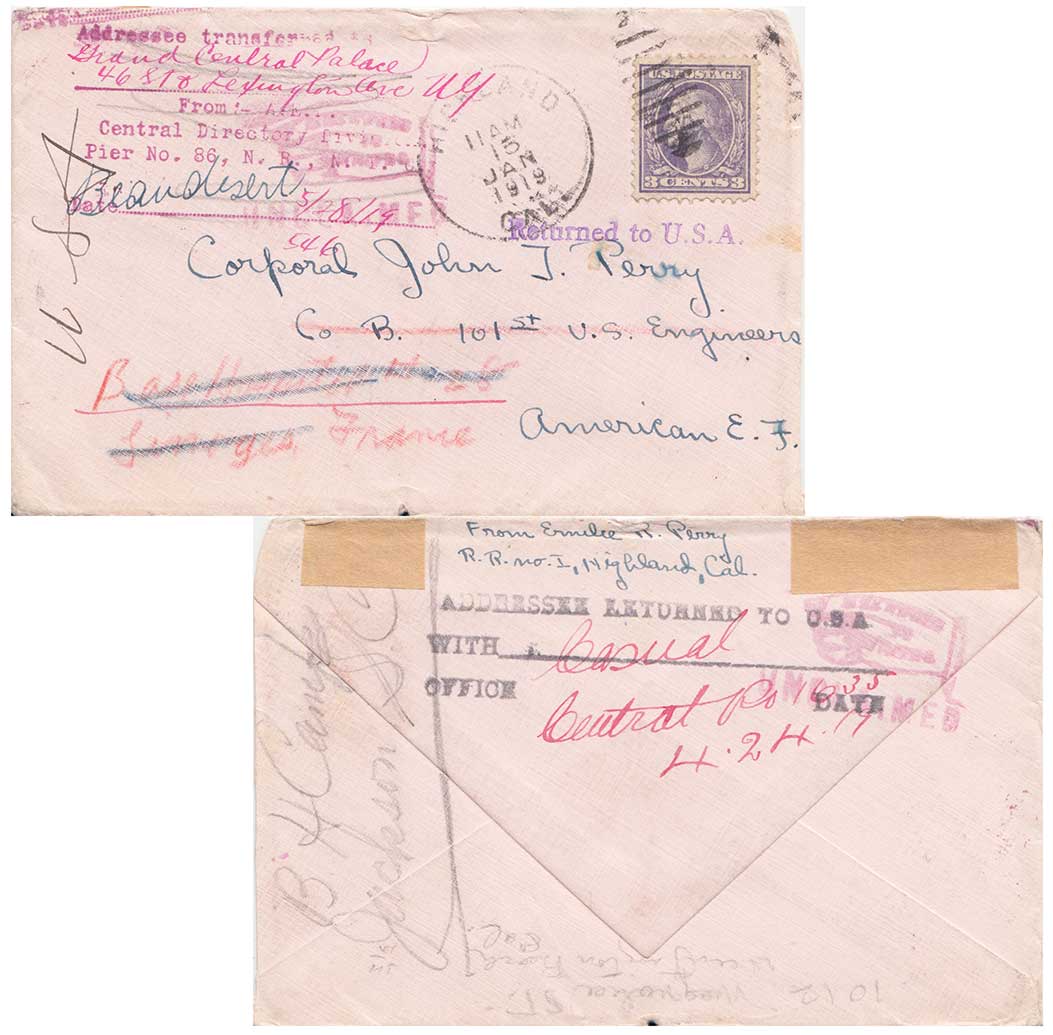 Addressee transferred to
Grand Central Palace
46 St & Lexington Ave NY
From:-
Central Directory
Pier No. 86, N. R., N. Y.
Date 5/28/19
546
U S A
HIGHLAND
11 AM
15
JAN
1919
CAL.
U.S. POSTAGE
3 CENTS 3
Returned to U.S.A.
Corporal John J. Perry
Co B. 101st U.S. Engineers
Base
Limoges, France
American E. F.
From Emilie R. Perry
R.R. no. 1, Highland, Cal.
ADDRESSEE RETURNED TO U.S.A
WITH Casual
OFFICE Central Po DATE
4.24.19
UNCLAIMED
B H Camp
Jackson S.C.
1012 Magnolia St.
Cal.